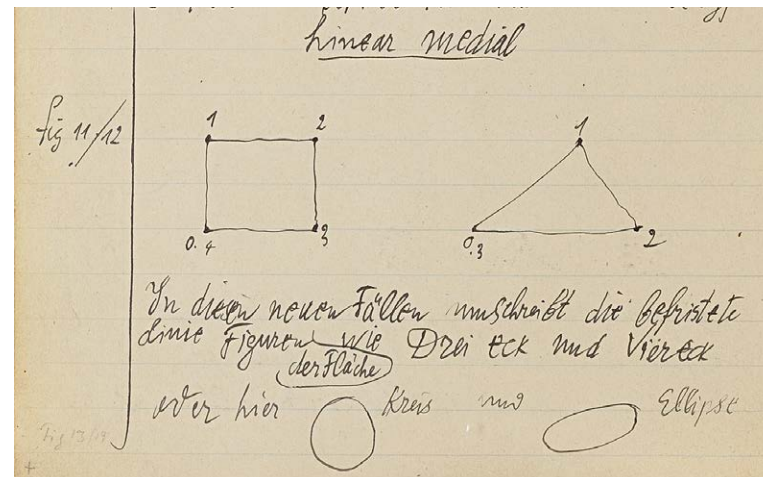 Linear medial
Fig 11/12
1 2
0. 4 3
1
0. 3 2
In diesen neuen Fällen umschreibt die befristete
Linie Figuren wie Drei eck und Viereck
der Fläche
oder hier Kreis und Ellipse
Fig 13/14